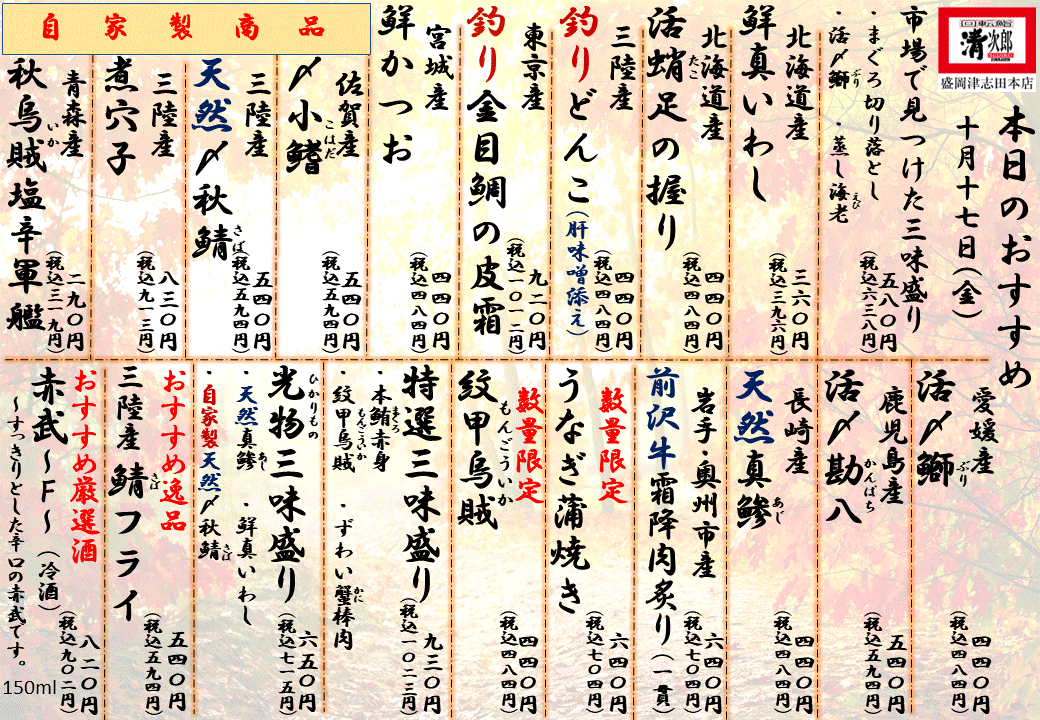 回転鮨
清次郎
盛岡津志田本店
本日のおすすめ
十月十七日(金)
市場で見つけた三味盛り
・まぐろ切り落とし
・活〆鰤 ・蒸し海老
ぶり
えび
五八〇円
(税込六三八円)
北海道産
鮮真いわし
三六〇円
(税込三九六円)
北海道産
活蛸足の握り
たこ
四四〇円
(税込四八四円)
三陸産
釣りどんこ(肝味噌添え)
四四〇円
(税込四八四円)
東京産
釣り金目鯛の皮霜
九二〇円
(税込一〇一二円)
宮城産
鮮かつお
四四〇円
(税込四八四円)
自家製商品
佐賀産
〆小鰭
こはだ
五四〇円
(税込五九四円)
三陸産
天然〆秋鯖
さば
五四〇円
(税込五九四円)
三陸産
煮穴子
八三〇円
(税込九一三円)
青森産
秋烏賊塩辛軍艦
いか
二九〇円
(税込三一九円)
愛媛産
活〆鰤
ぶり
四四〇円
(税込四八四円)
鹿児島産
活〆勘八
かんぱち
五四〇円
(税込五九四円)
長崎産
天然真鯵
あじ
四四〇円
(税込四八四円)
岩手・奥州市産
前沢牛霜降肉炙り(一貫)
六四〇円
(税込七〇四円)
数量限定
うなぎ蒲焼き
六四〇円
(税込七〇四円)
数量限定
紋甲烏賊
もんごういか
四四〇円
(税込四八四円)
特選三味盛り
・本鮪赤身
まぐろ
・紋甲烏賊 ・ずわい蟹棒肉
もんごういか
かに
九三〇円
(税込一〇二三円)
光物三味盛り
ひかりもの
・天然真鯵 ・鮮真いわし
あじ
・自家製天然〆秋鯖
さば
六五〇円
(税込七一五円)
おすすめ逸品
三陸産 鯖フライ
さば
五四〇円
(税込五九四円)
おすすめ厳選酒
赤武~F~(冷酒)
~すっきりとした辛口の赤武です。
八二〇円
(税込九〇二円)
150ml